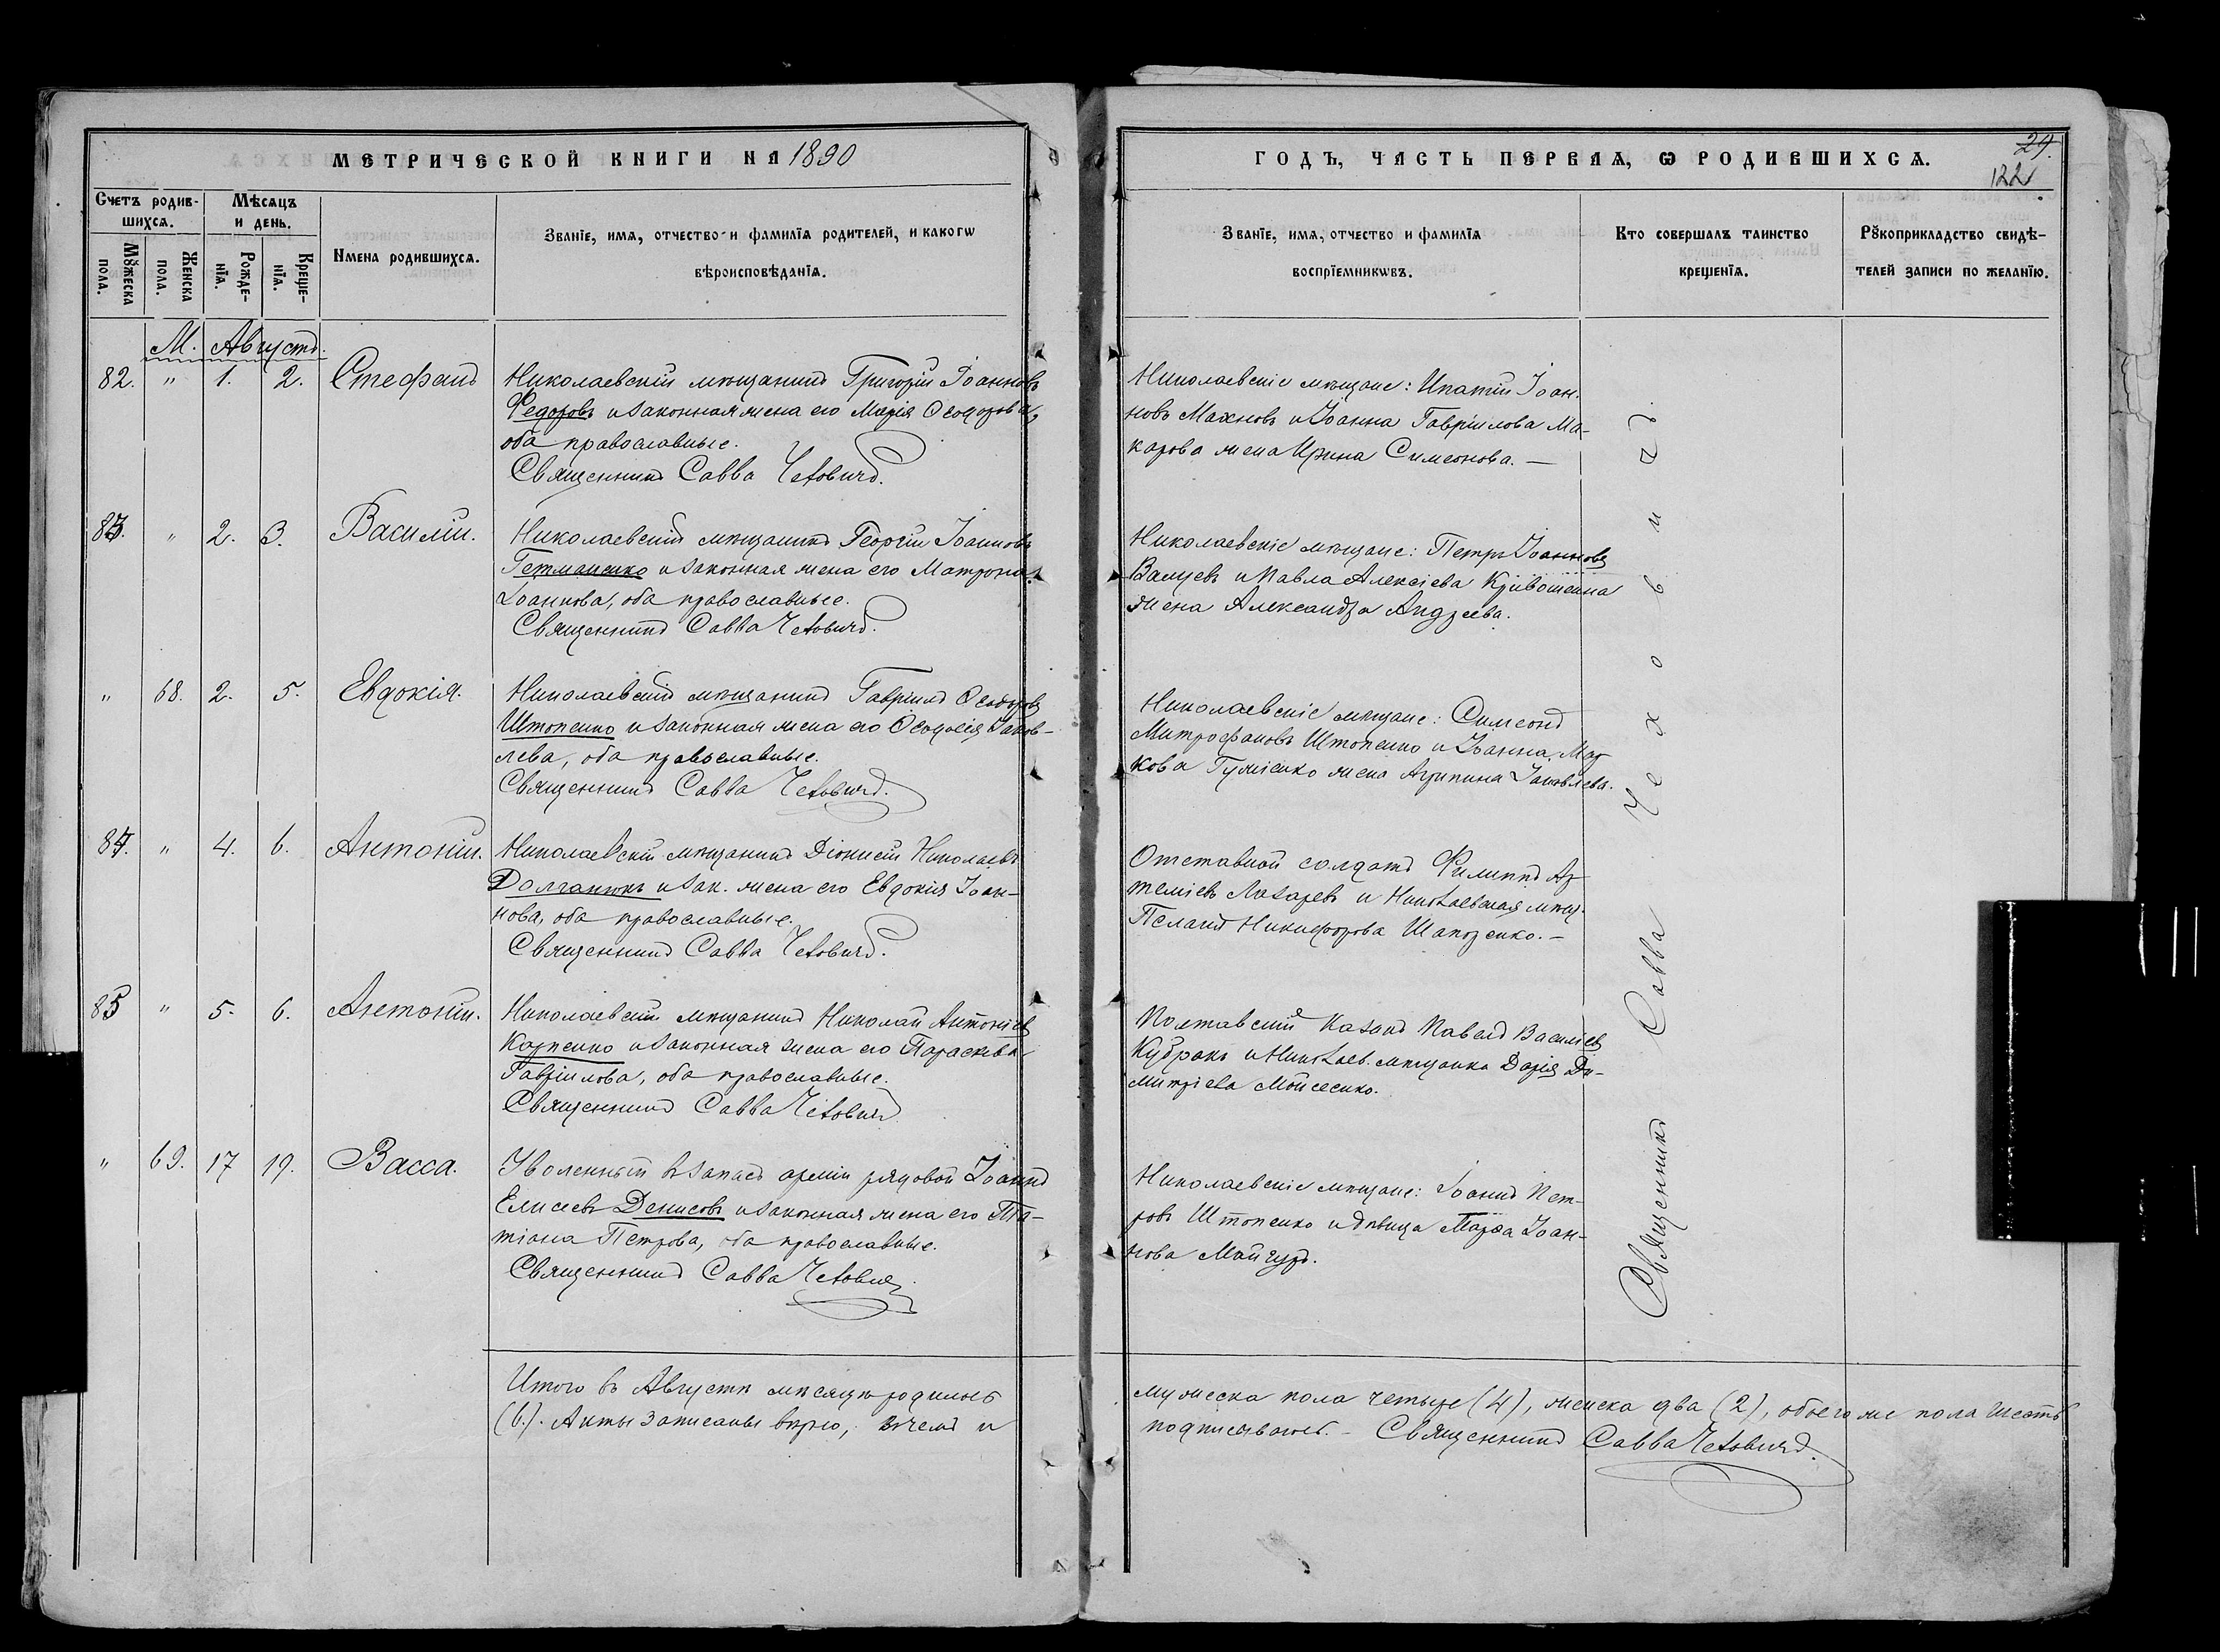 МЕТРИЧЕСКОЙ КНИГИ НА 1890
Счетъ родив-
шихся.
Мѣсяцъ
и день.
Мꙋжеска
пола.
Женска
пола.
Рожде-
нїя.
Креще-
нїя.
Имена родившихся.
Званїе, имя, отчество и фамилїя родителей, и какогѡ
вѣроисповѣданїя.
М. Августъ.
82. " 1. 2. Стефанъ
Николаевскій мѣщанинъ Григорій Іоанновъ
Федоровъ и законная жена его Марія Ѳеодорова,
оба православные.
Священникъ Савва Чеховичъ.
83. " 2. 3. Василій.
Николаевскій мѣщанинъ Георгій Іоанновъ
Гетманенко и законная жена его Матрона
Іоаннова, оба православные.
Священникъ Савва Чеховичъ.
" 68. 2. 5. Евдокія.
Николаевскій мѣщанинъ Гавріилъ Ѳеодоровъ
Штопенко и законная жена его Ѳеодосія Іаков-
лева, оба православные.
Священникъ Савва Чеховичъ.
84. " 4. 6. Антоній.
Николаевскій мѣщанинъ Діонисій Николаевъ
Долганюкъ и зак. жена его Евдокія Іоан-
нова, оба православные.
Священникъ Савва Чеховичъ.
85 " 5. 6. Антоній.
Николаевскій мѣщанинъ Николай Антоніевъ
Карпенко и законная жена его Параскева
Гавріилова, оба православные.
Священникъ Савва Чеховичъ
" 69. 17 19. Васса.
Уволенный въ запасъ арміи рядовой Іоаннъ
Елисеевъ Денисовъ и законная жена его Та-
тіана Петрова, оба православные.
Священникъ Савва Чеховичъ
Итого въ Августѣ мѣсяцѣ родилось
(6.). Акты записаны вѣрно, въ чемъ и
ГОДЪ, ЧАСТЬ ПЕРВАЯ, Ѡ РОДИВШИХСЯ.
29.
122
Званїе, имя, отчество и фамилїя
воспрїемникѡвъ.
Кто совершалъ таинство
крещенїя.
Рꙋкоприкладство свидѣ-
телей записи по желанїю.
Николаевскіе мѣщане: Ипатій Іоан-
новъ Махновъ и Іоанна Гавріилова Ма-
карова жена Ирина Симеонова. —
Николаевскіе мѣщане: Петръ Іоанновъ
Валуевъ и Павла Алексіева Кривошеина
жена Александра Андреева.
Николаевскіе мѣщане: Симеонъ
Митрофановъ Штопенко и Іоанна Мар-
кова жена Агрипина Іаковлева.
Отставной солдатъ Филиппъ Ар-
теміевъ Лазаревъ и Николаевская мѣщ.
Пелагія Никифорова Шапоренко. —
Полтавскій казакъ Павелъ Василіевъ
Кубракъ и Николаев. мѣщанка Дарія Ди-
митріева Мойсеенко.
Николаевскіе мѣщане: Іоаннъ Пет-
ровъ Штопенко и дѣвица Марѳа Іоан-
нова Майгуръ.
Священникъ Савва Чеховичъ.
мужеска пола четыре (4), женска два (2), обоего же пола шесть
подписываюсь. — Священникъ Савва Чеховичъ.